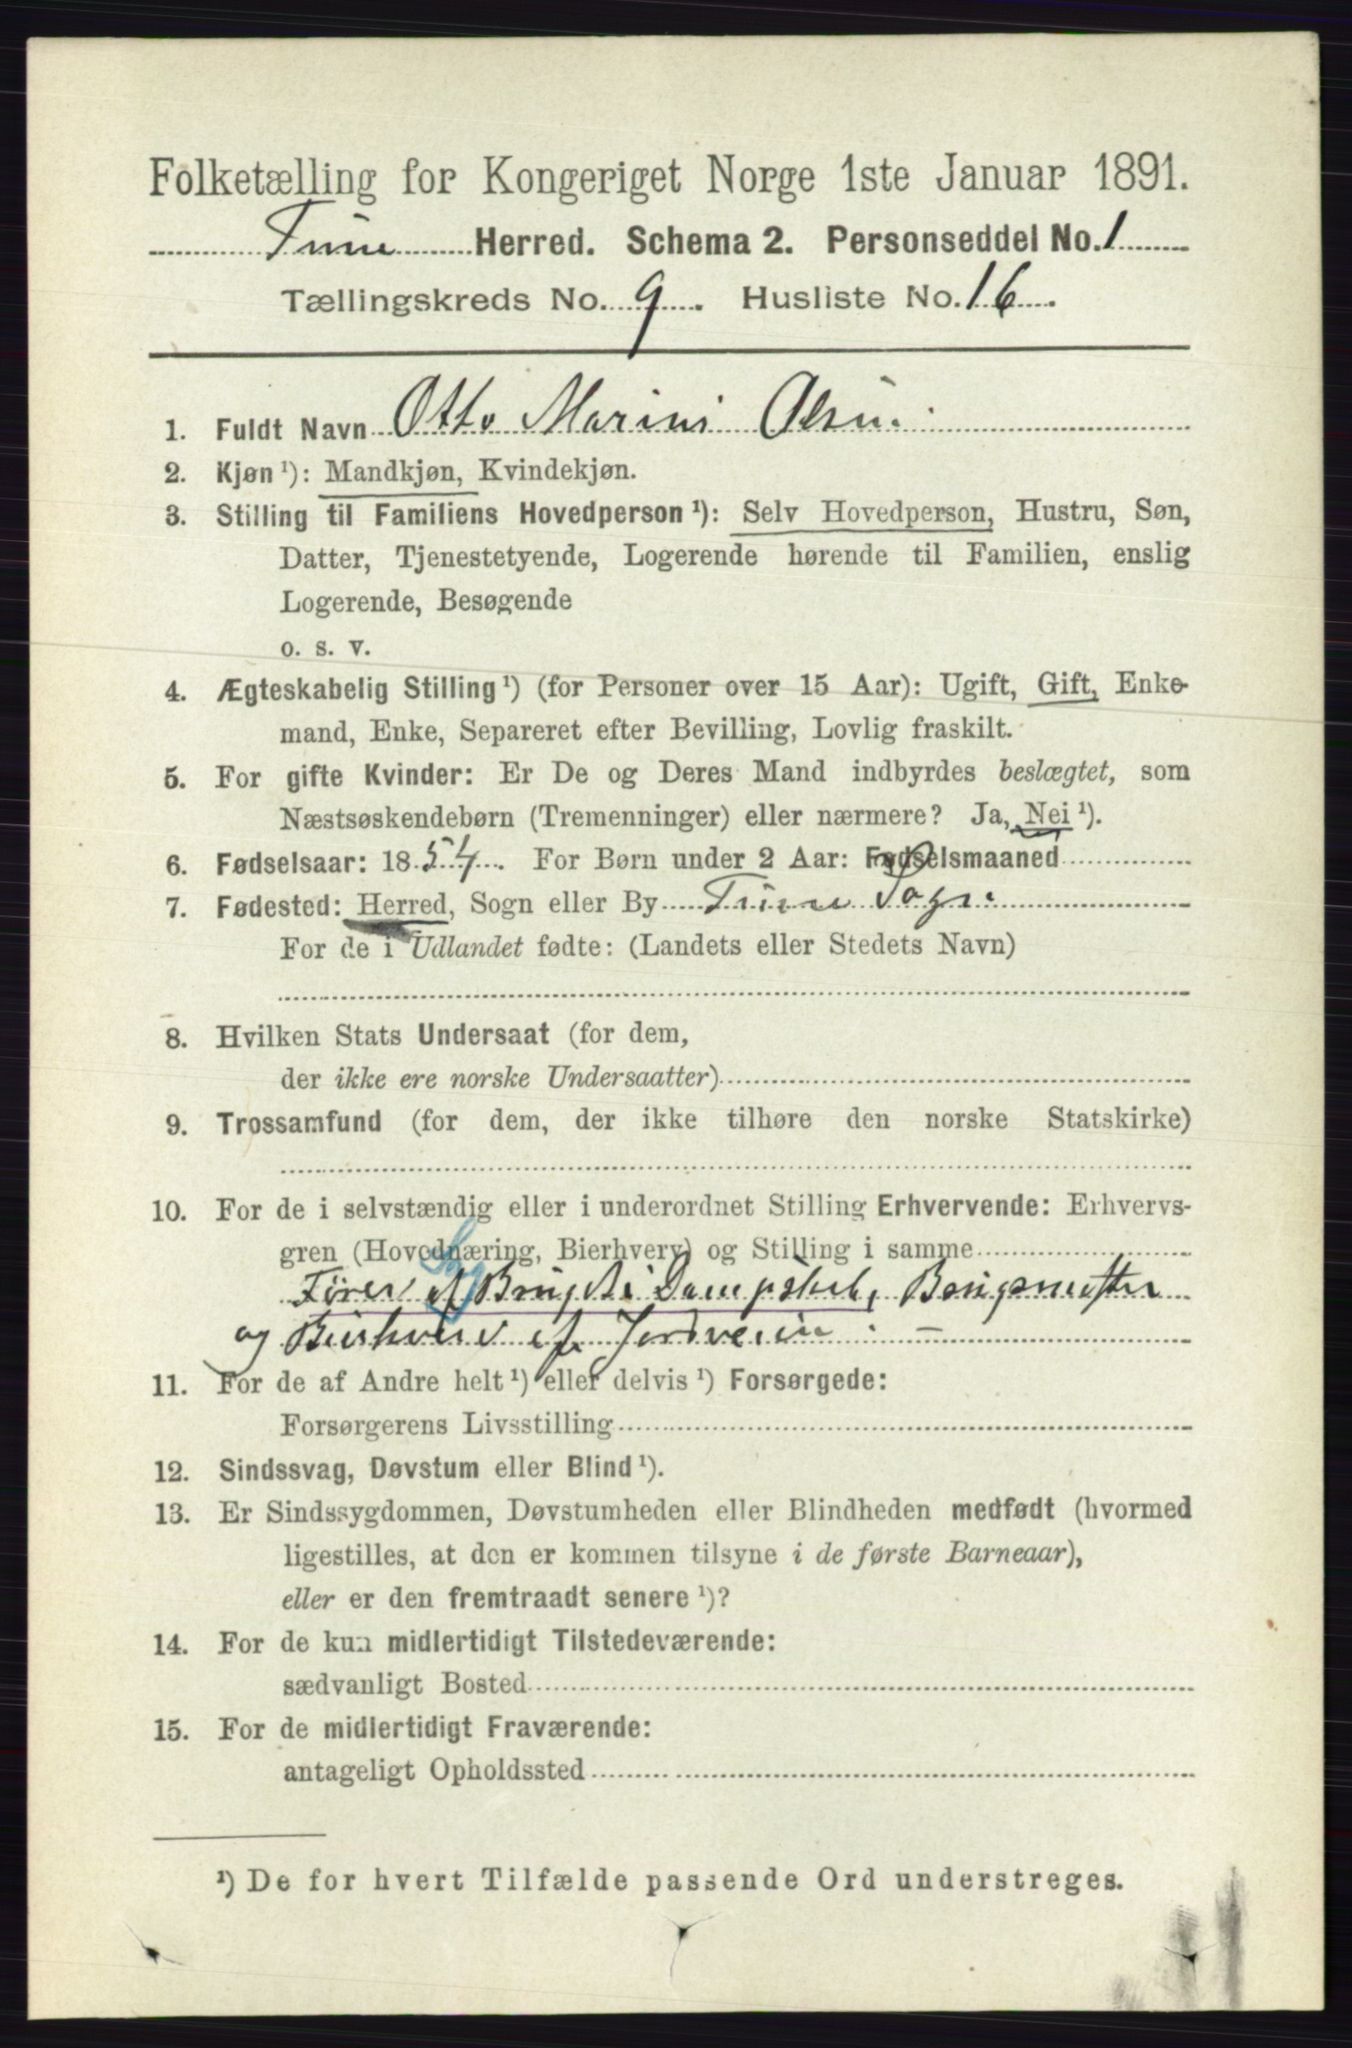 Folketælling for Kongeriget Norge 1ste Januar 1891.
Tune Herred. Schema 2. Personseddel No. 1
Tællingskreds No. 9. Husliste No. 16.
1. Fuldt Navn Otto Marius Olsen.
2. Kjøn ¹): Mandkjøn, Kvindekjøn.
3. Stilling til Familiens Hovedperson ¹): Selv Hovedperson, Hustru, Søn,
Datter, Tjenestetyende, Logerende hørende til Familien, enslig
Logerende, Besøgende
o. s. v.
4. Ægteskabelig Stilling ¹) (for Personer over 15 Aar): Ugift, Gift, Enke-
mand, Enke, Separeret efter Bevilling, Lovlig fraskilt.
5. For gifte Kvinder: Er De og Deres Mand indbyrdes beslægtet, som
Næstsøskendebørn (Tremenninger) eller nærmere? Ja, Nei ¹).
6. Fødselsaar: 1854. For Børn under 2 Aar: Fødselsmaaned
7. Fødested: Herred, Sogn eller By Tune Sogn
For de i Udlandet fødte: (Landets eller Stedets Navn)
8. Hvilken Stats Undersaat (for dem,
der ikke ere norske Undersaatter)
9. Trossamfund (for dem, der ikke tilhøre den norske Statskirke)
10. For de i selvstændig eller i underordnet Stilling Erhvervende: Erhvervs-
gren (Hovednæring, Bierhverv) og Stilling i samme
Fører af Dampskib,
og Bierhverv af
11. For de af Andre helt ¹) eller delvis ¹) Forsørgede:
Forsørgerens Livsstilling
12. Sindssvag, Døvstum eller Blind ¹).
13. Er Sindssygdommen, Døvstumheden eller Blindheden medfødt (hvormed
ligestilles, at den er kommen tilsyne i de første Barneaar),
eller er den fremtraadt senere ¹)?
14. For de kun midlertidigt Tilstedeværende:
sædvanligt Bosted
15. For de midlertidigt Fraværende:
antageligt Opholdssted
¹) De for hvert Tilfælde passende Ord understreges.